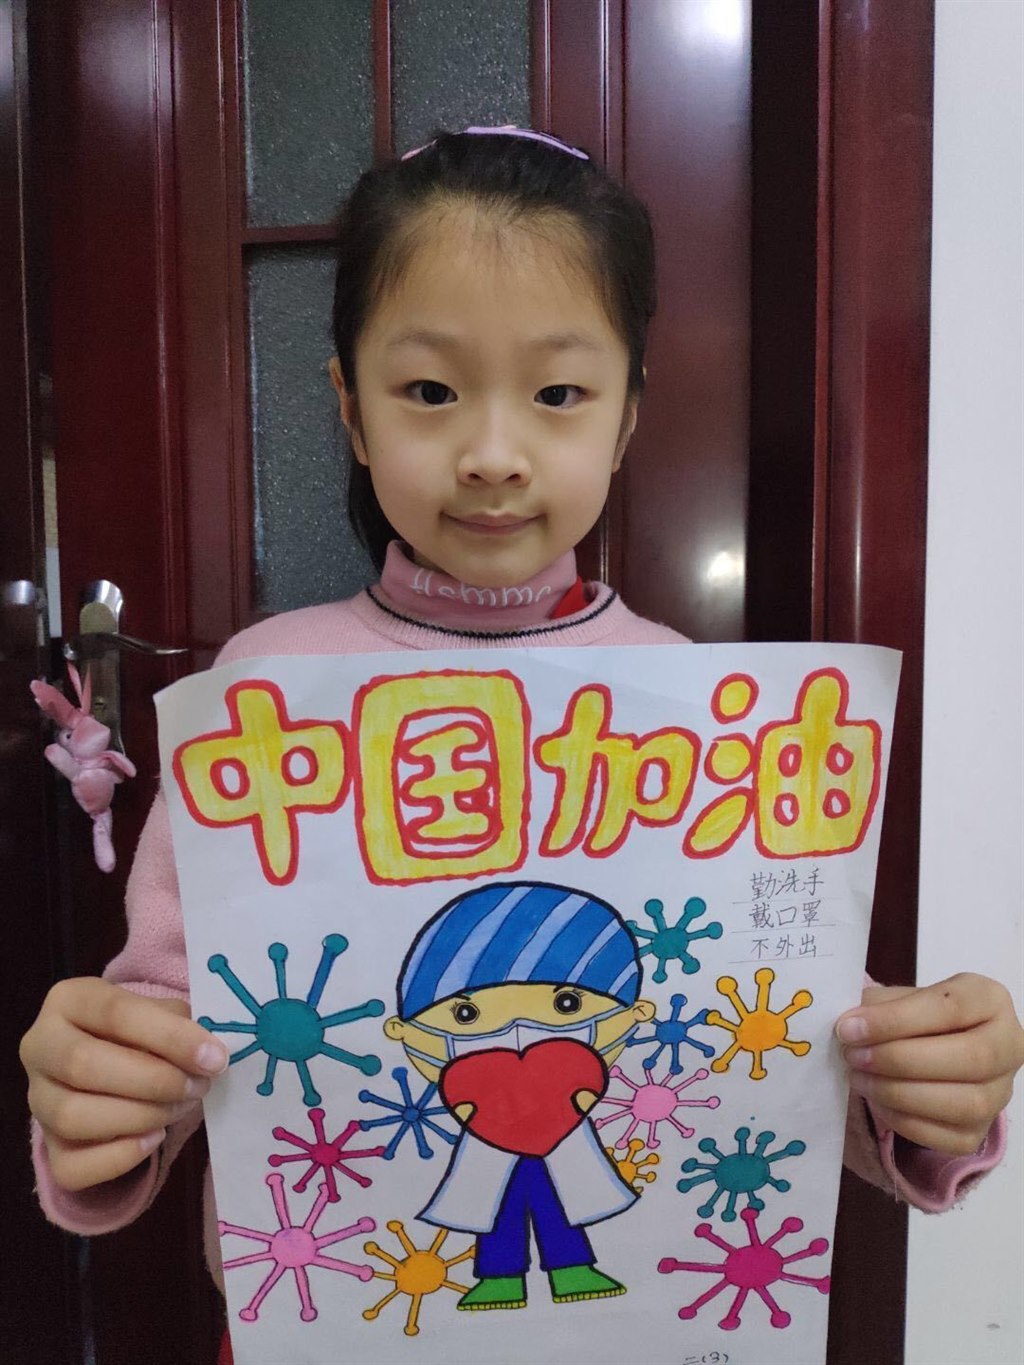 中国加油
勤洗手
戴口罩
不外出
二(3)